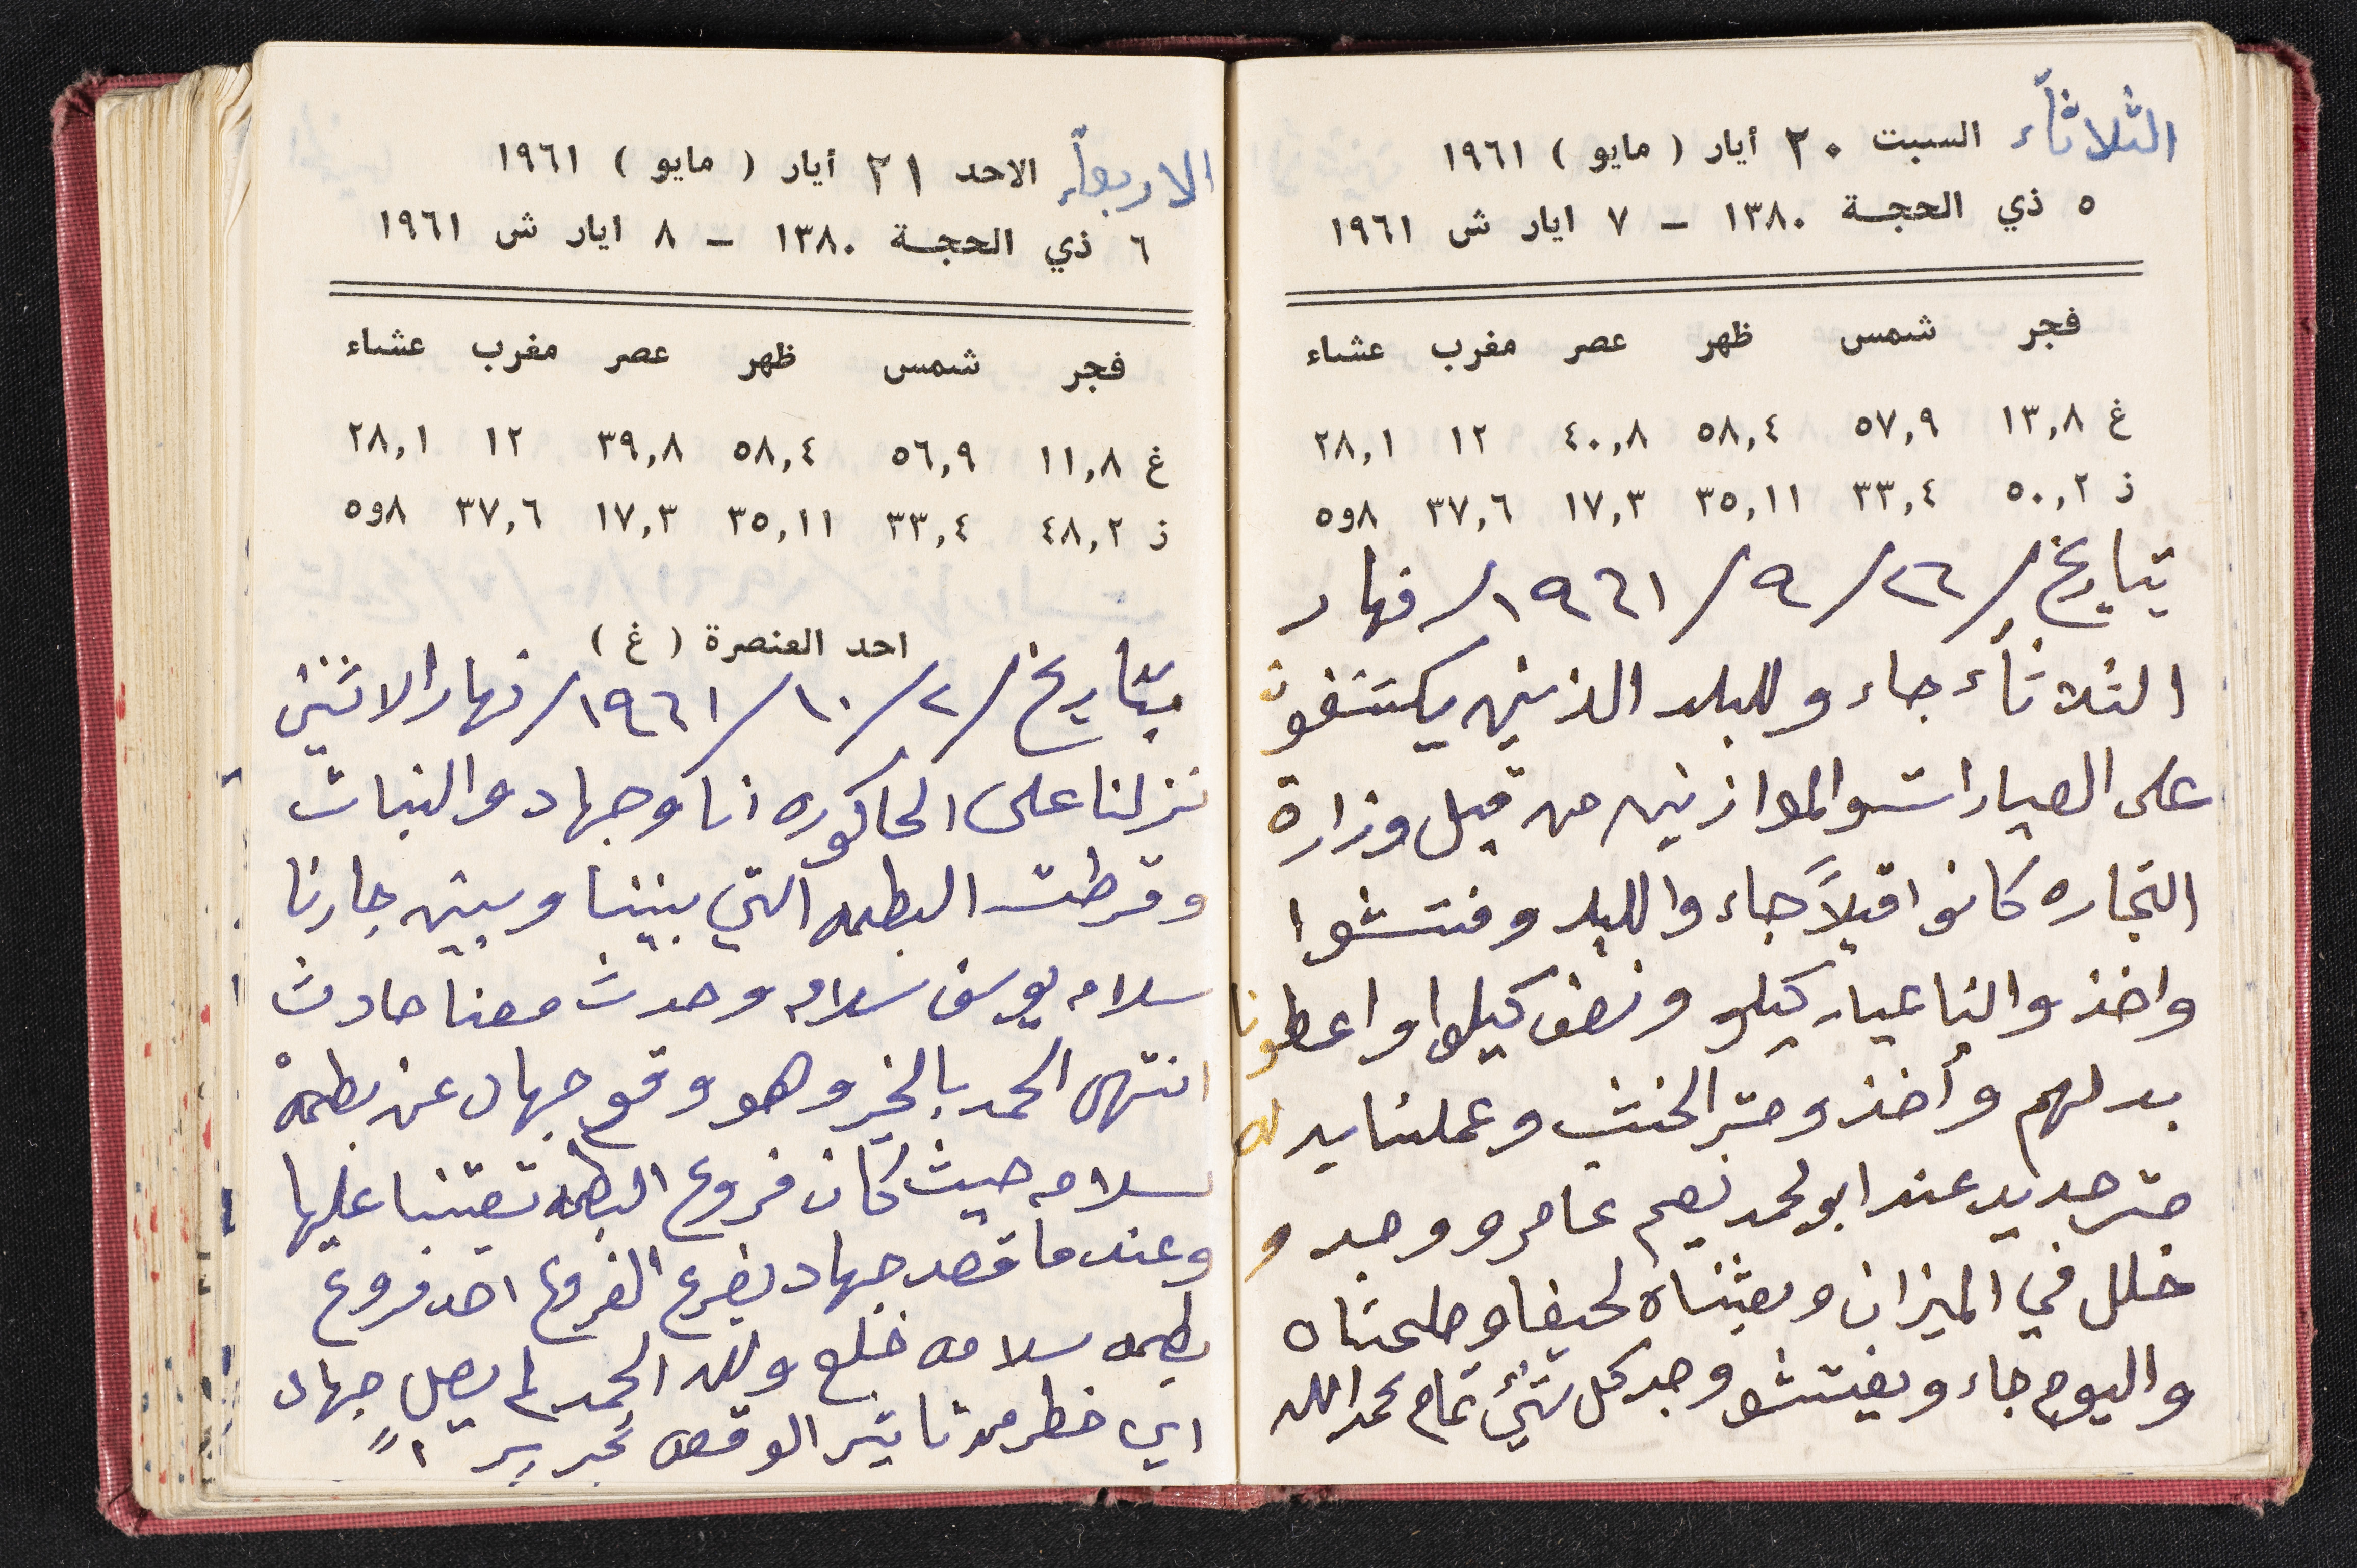 الثلاثاء السبت ٢٠ أيار ( مايو ) ١٩٦١
٥ ذي الحجة ١٣٨٠ – ٧ ايار ش ١٩٦١
فجر شمس ظهر عصر مغرب عشاء
غ ١٣,٨ ٥٧,٩ ٥٨,٤ ٤٠,٨ ١٢ ٢٨,١
ذ ٥٠,٢ ٣٣,٤ ٣٥,١١ ١٧,٣ ٣٧,٦ ٨و٥
بتاريخ/٢٦/٩/١٩٦١/نهار
الثلاثاء جاء و للبلد الذين يكتشفون
على العيارات والموازين من قبل وزارة
التجاره كانوا قبلاً جاء وا للبلد وفتشوا
واخذ والنا عيار كيلو ونصف كيلوا واعطونا
بدلهم وأخذ ومتر الخشب وعملنا بدله
متر جديد عند ابو محمد نعيم عامر ووجد و
خلل في الميزان وبعثناه لحيفا وصلحناه
واليوم جاء ويفتشو وجد كل شيء تمام بحمد الله
الاربعاء الاحد ٢١ أيار ( مايو ) ١٩٦١
٦ ذي الحجة ١٣٨٠ – ٨ ايار ش ١٩٦١
فجر شمس ظهر عصر مغرب عشاء
غ ١١,٨ ٥٦,٩ ٥٨,٤ ٣٩,٨ ١٢ ٢٨,١
ذ ٤٨,٢ ٣٣,٤ ٣٥,١١ ١٧,٣ ٣٧,٦ ٨و٥
احد العنصرة ( غ )
بتاريخ/٢/١٠/١٩٦١/نهار الاثنين
نزلنا على الحاكوره انا وجهاد والبنات
وقرطت البطمه التي بيننا وبين جارنا
سلامه يوسف سلامه وحدث معنا حادث
انتهى الحمد بالخير وهو وقوع جهاد عن بطمة
سلامه حيث كان فروع البطمه تبعتنا عليها
وعندما قصد جهاد يفرع الفروع احد فروع
بطمه سلامه خلع ولله الحمد لم يصل جهاد
اي خطر من تأثير الوقعه